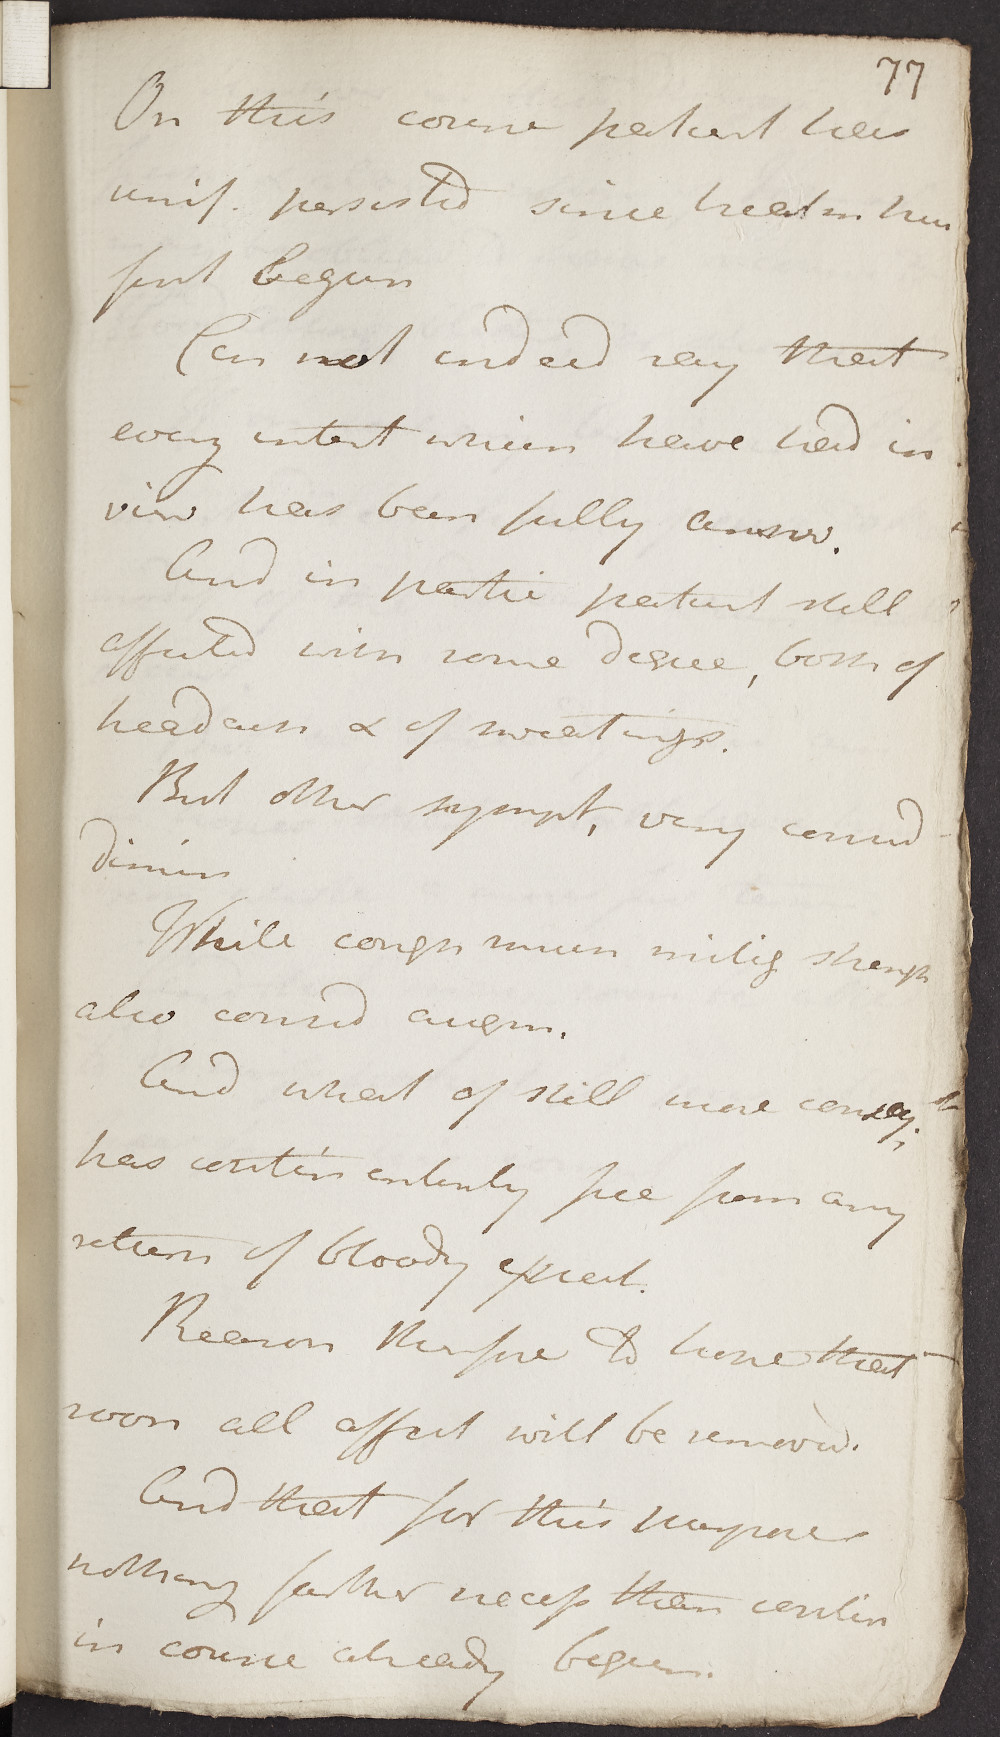 77
On this course patient has
unif. persisted since treatm was
first begun
Can not indeed say that
every intent which have had in
view has been fully answ.
And in partic patient still
affected with some degree, both of
headach & of sweatings.
But other sympt, very consid
dimin
While cough much mitig strength
also consid augm.
And what of still more conseq.
has contin entirely free from any
return of bloody expect.
Reason therefore to hope that
soon all affect will be removed.
And that for this purpose
nothing farther necess than contin
in course already begun.